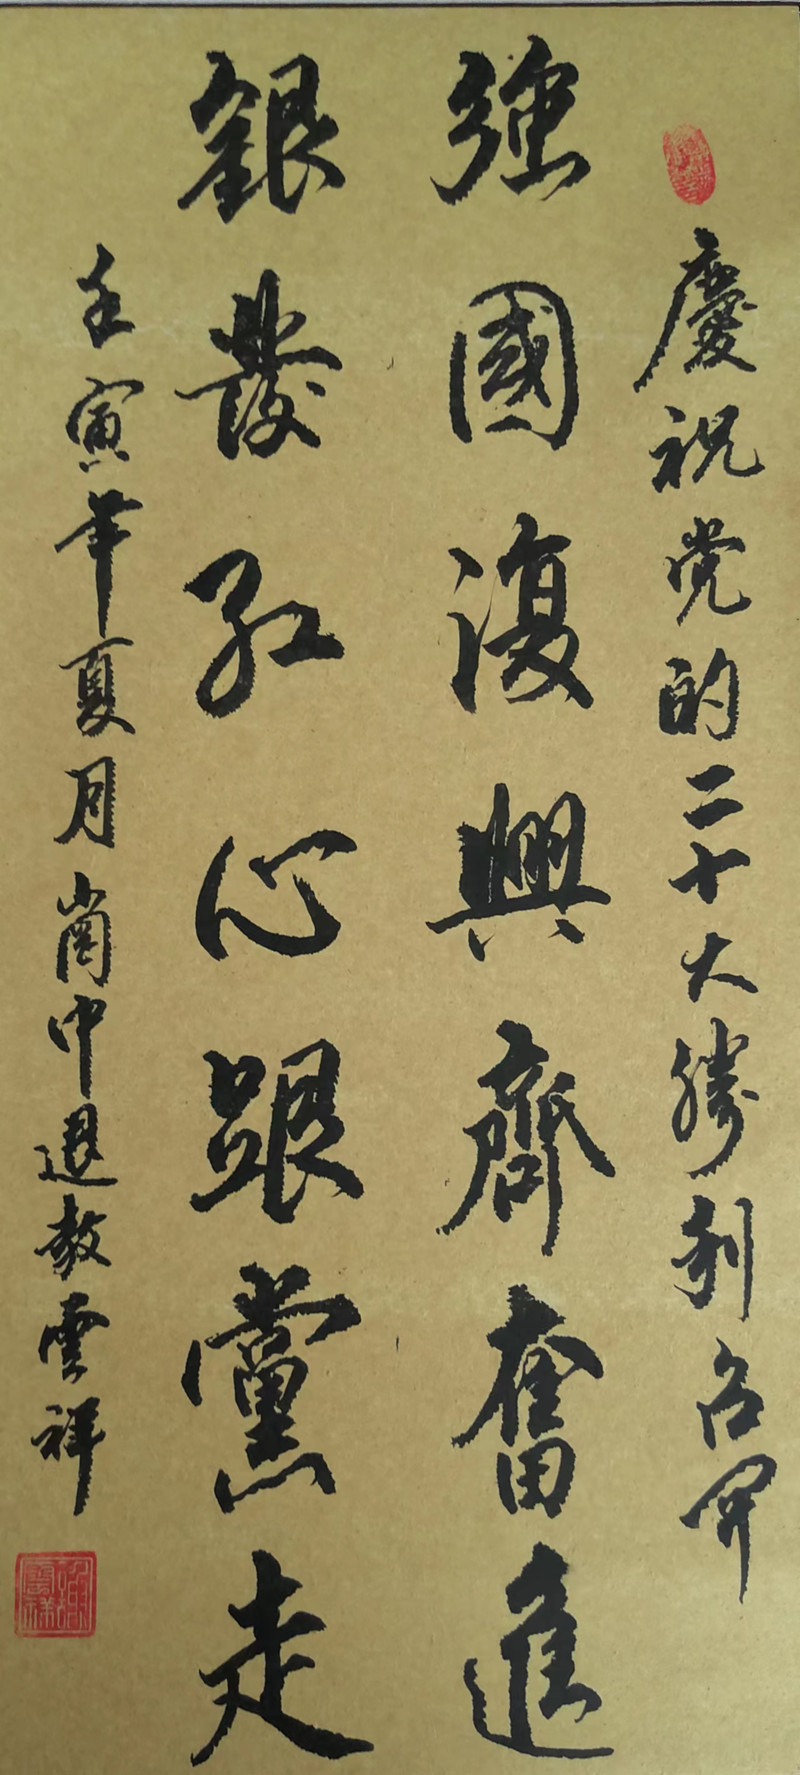 慶祝党的二十大勝利召開
強國復興齊奮進
銀發紅心跟黨走
壬寅年夏月崗中退教雲祥